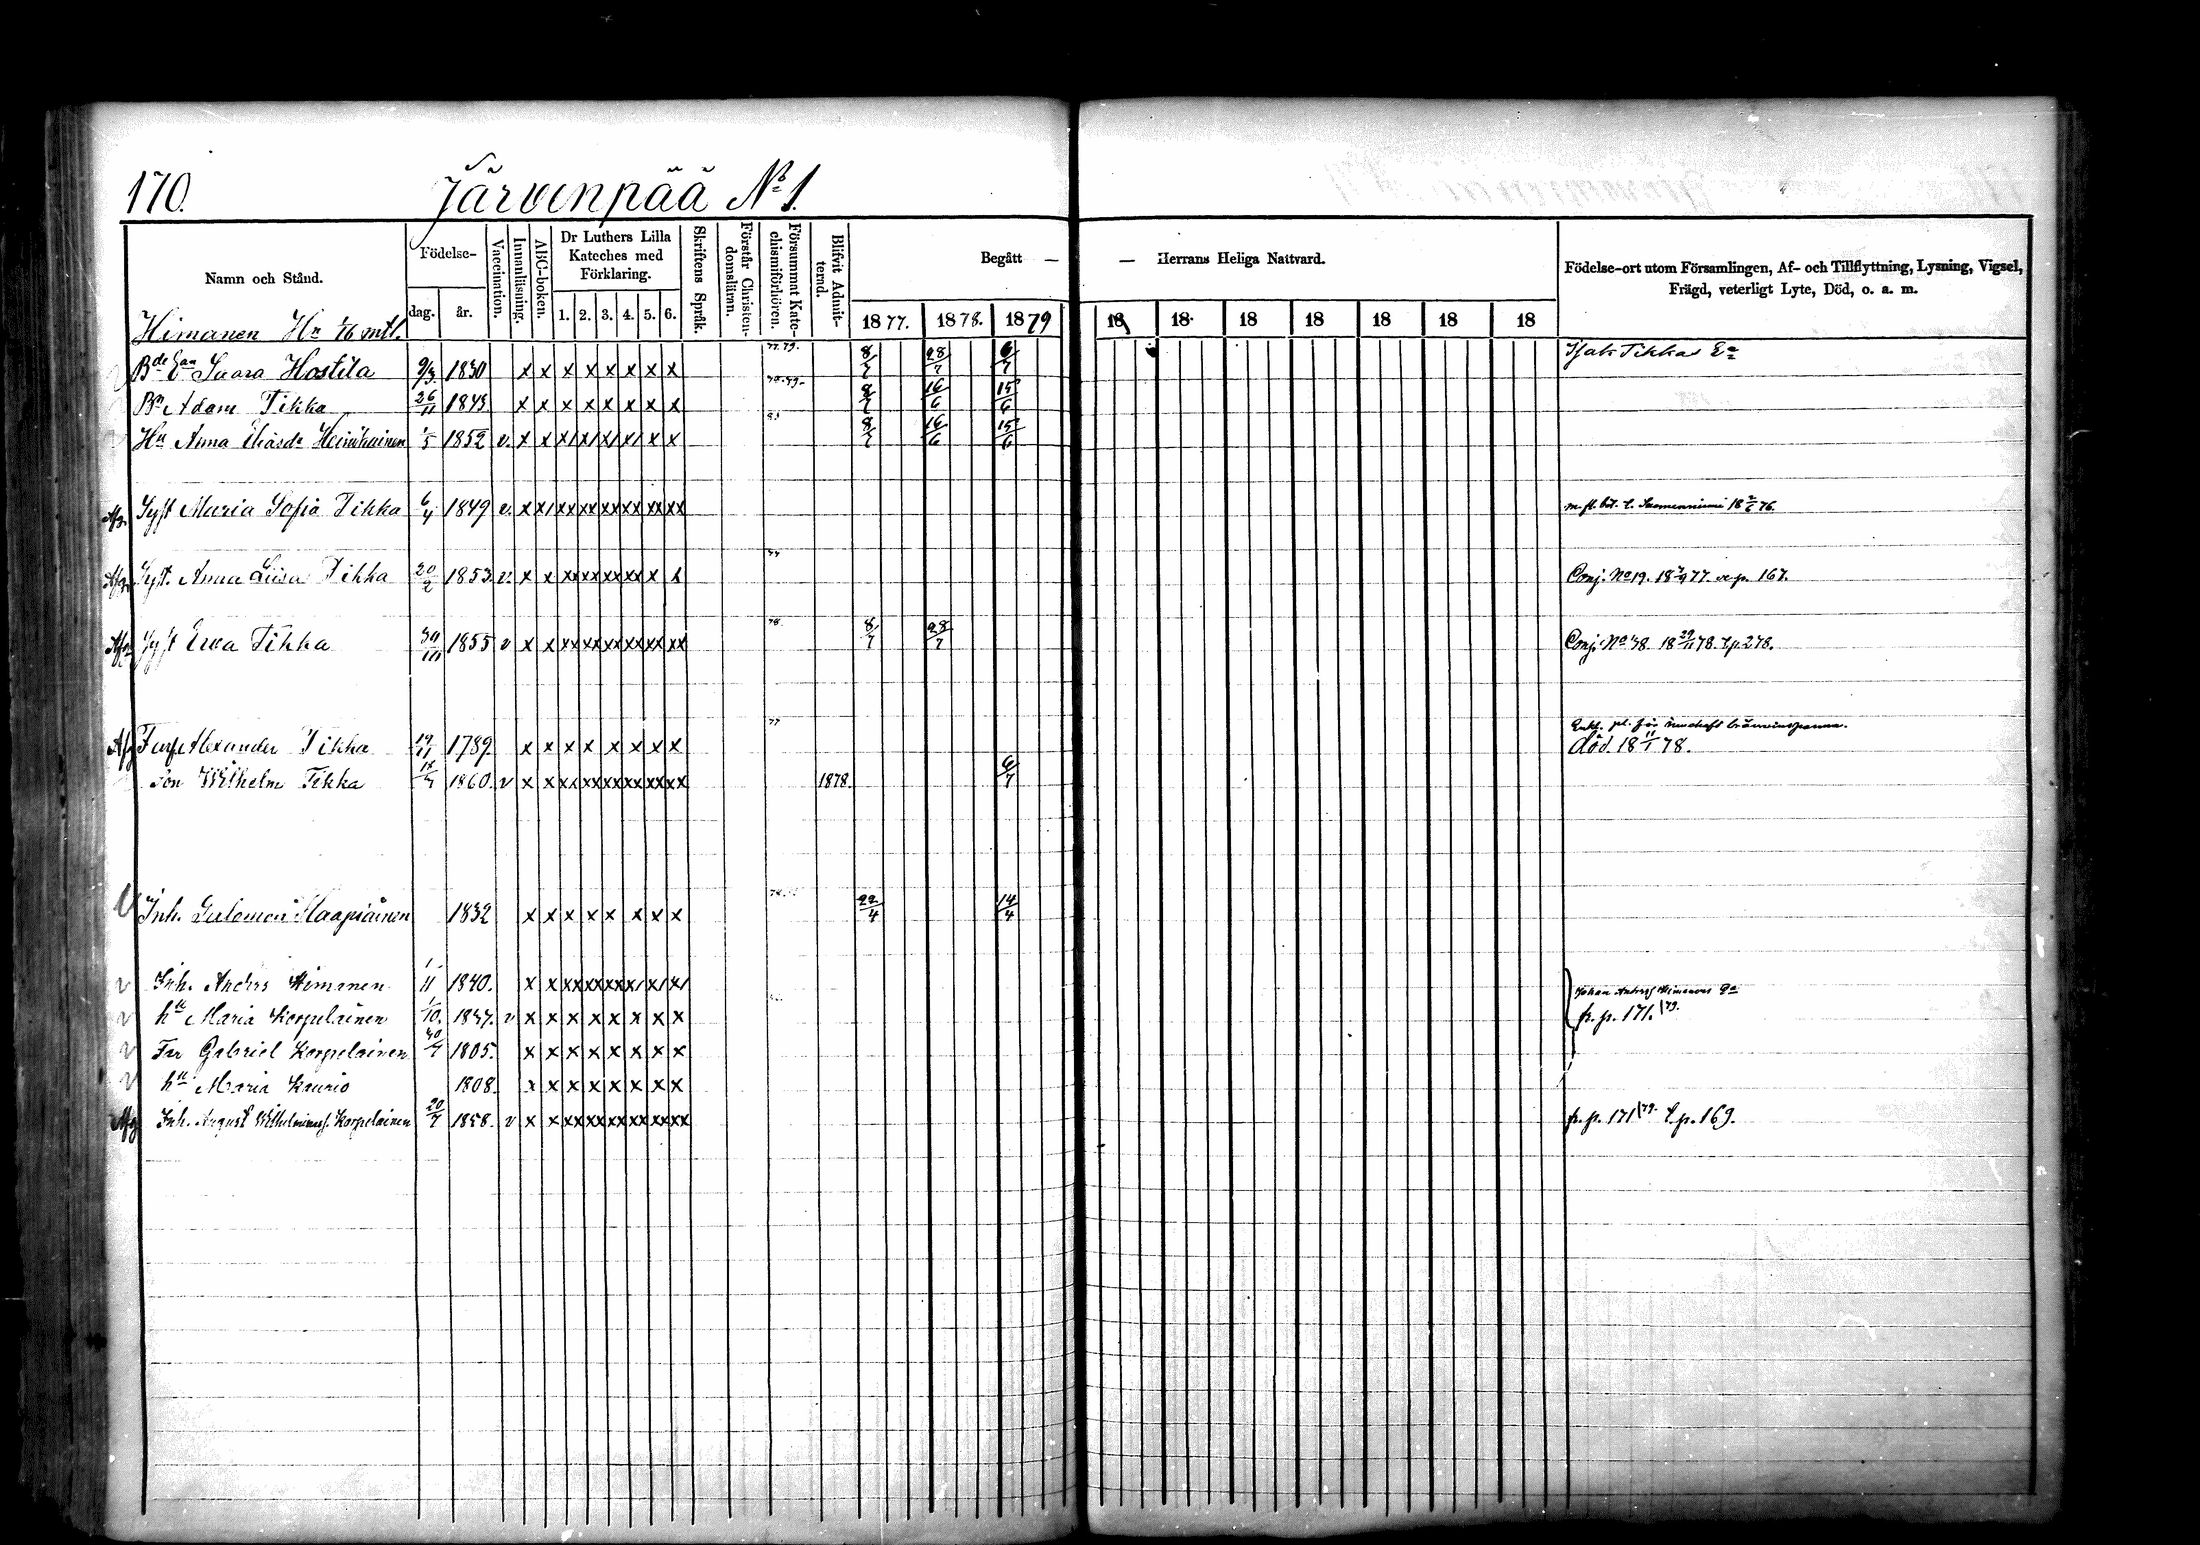 170. Järvenpää No 1.
Namn och Stånd. Födelse- dag. år. Vaccination. Innanläsning. ABC-boken. Dr Luthers Lilla Kateches med Förklaring. 1. 2. 3. 4. 5. 6. Skriftens Språk. Förstår Christendomsläran. Försummat Katechismiförhören. Blifvit Admitterad. Begått — — Herrans Heliga Nattvard. 1877. 1878. 1879 18 18 18 18 18 18 18 Födelse-ort utom Församlingen, Af- och Tillflyttning, Lysning, Vigsel, Frägd, veterligt Lyte, Död, o. a. m.
Himanen Hn 1/6 mtl.
Bde Ean Saara Hostila 9/3 1830 x x x x x x x x 77.79. 8/7 28/7 6/7 Isak Tikkas Ea
Bn Adam Tikka 26/11 1843 x x x x x x x x 8/7 16/6 15/6
Hu Anna Eliasdr Heinikainen 1/5 1852 v. x x x x x x x x 8/7 16/6 15/6
Afg. Syst Maria Sofia Tikka 6/4 1849 v. x x xx xx xx xx xx xx
Afg. Syst. Anna Liisa Tikka 20/2 1853. v. x x xx xx xx xx x x Conj. No 19. 18 77. p. 167.
Afg Syst Eva Tikka 1855 v x x xx xx xx xx xx xx 78. 8/7 28/7 Conj. No 48. 18 29/11 78. t.p. 278.
Afg Alexander Tikka 19/11 1789 x x x x x x x x 77 död. 18 11/1 78.
Son Wilhelm Tikka 1860. v x x xx xx xx xx xx xx 1878. 6/7
Inh. Salomon Haapiainen 1832 x x x x x x x x 22/4 14/4
v Inh. Anders Himanen 1/11 1840. x x xx xx xx x x x Johan Anderss Himanens
v hu Maria Korpelainen 1/10. 1837. v x x x x x x x x fr. p. 171. /79.
v Far Gabriel Korpelainen 1805. x x x x x x x x
v hu Maria Kaurio 1808. x x x x x x x x
Afg Inh. August Wilhelminus. Korpelainen 20/7 1858. v x x xx xx xx xx xx xx fr. p. 171 /79. t. p. 169.